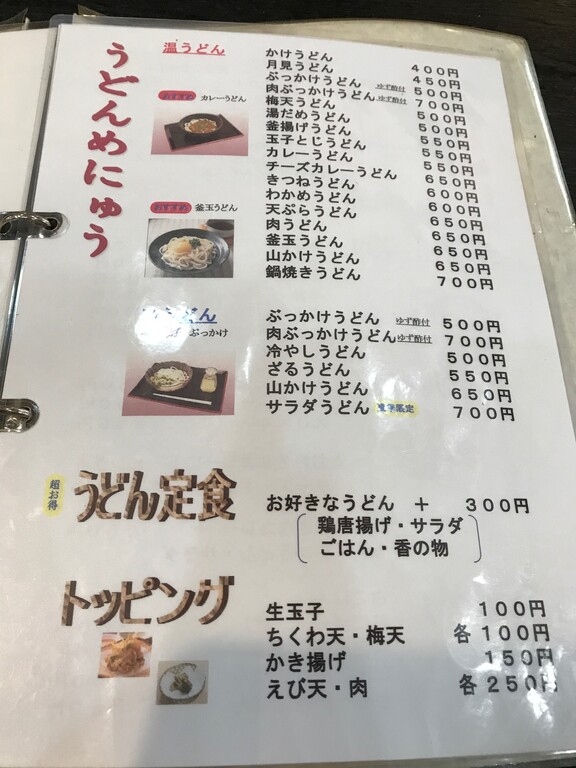 うどんめにゅう
温うどん
おすすめ カレーうどん
おすすめ 釜玉うどん
かけうどん 400円
月見うどん 450円
ぶっかけうどん ゆず酢付 500円
肉ぶっかけうどん ゆず酢付 700円
梅天うどん 500円
湯だめうどん 500円
釜揚げうどん 550円
玉子とじうどん 550円
カレーうどん 550円
チーズカレーうどん 650円
きつねうどん 600円
わかめうどん 600円
天ぷらうどん 650円
肉うどん 650円
釜玉うどん 650円
山かけうどん 650円
鍋焼きうどん 700円
うどん
ぶっかけ
ぶっかけうどん ゆず酢付 500円
肉ぶっかけうどん ゆず酢付 700円
冷やしうどん 500円
ざるうどん 550円
山かけうどん 650円
サラダうどん 夏季限定 700円
超お得
うどん定食
お好きなうどん + 300円
鶏唐揚げ・サラダ
ごはん・香の物
トッピング
生玉子 100円
ちくわ天・梅天 各100円
かき揚げ 150円
えび天・肉 各250円